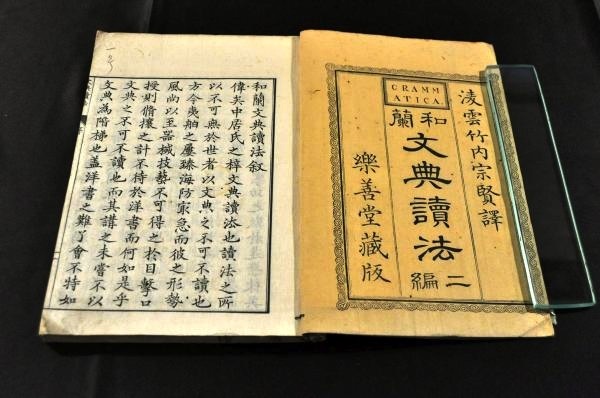 凌雲竹内宗賢譯
GRAMM
ATICA.
和蘭
文典讀法
二編
樂善堂藏版
和蘭文典讀法叙
偉其中居氏之梓文典讀法也讀法之所
以不可無於世者以文典之不可不讀也
方今夷舶之屢臻海防家急而彼之形勢
風尚以至器械技藝不可得之於目擊口
授則脩攘之計不待於洋書而何如是乎
文典之不可不讀也而其講之未嘗不以
文典為階梯也盖洋書之難了會不特如